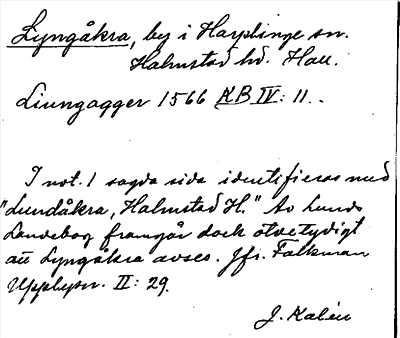 Lyngåkra, by i Harplinge sn.
Halmstad hd. Hall.
Liungagger 1566 KB IV: 11.
I not. 1 sagda sida identifieras med
"Lundåkra, Halmstad H." Av Lunds
Landebog framgår dock otvetydigt
att Lyngåkra avses. Jfr. Falkman
Upplysn. II: 29.
J. Kalén